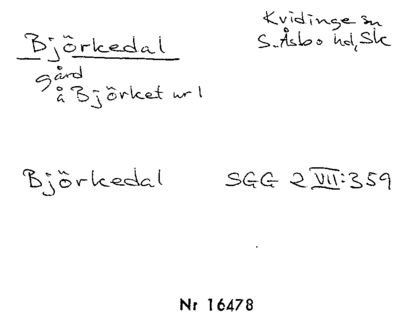 Björkedal
Kvidinge sn
S. Åsbo hd, Sk
gård
å Björket nr 1
Björkedal SGG 2 VII:359
Nr 16478